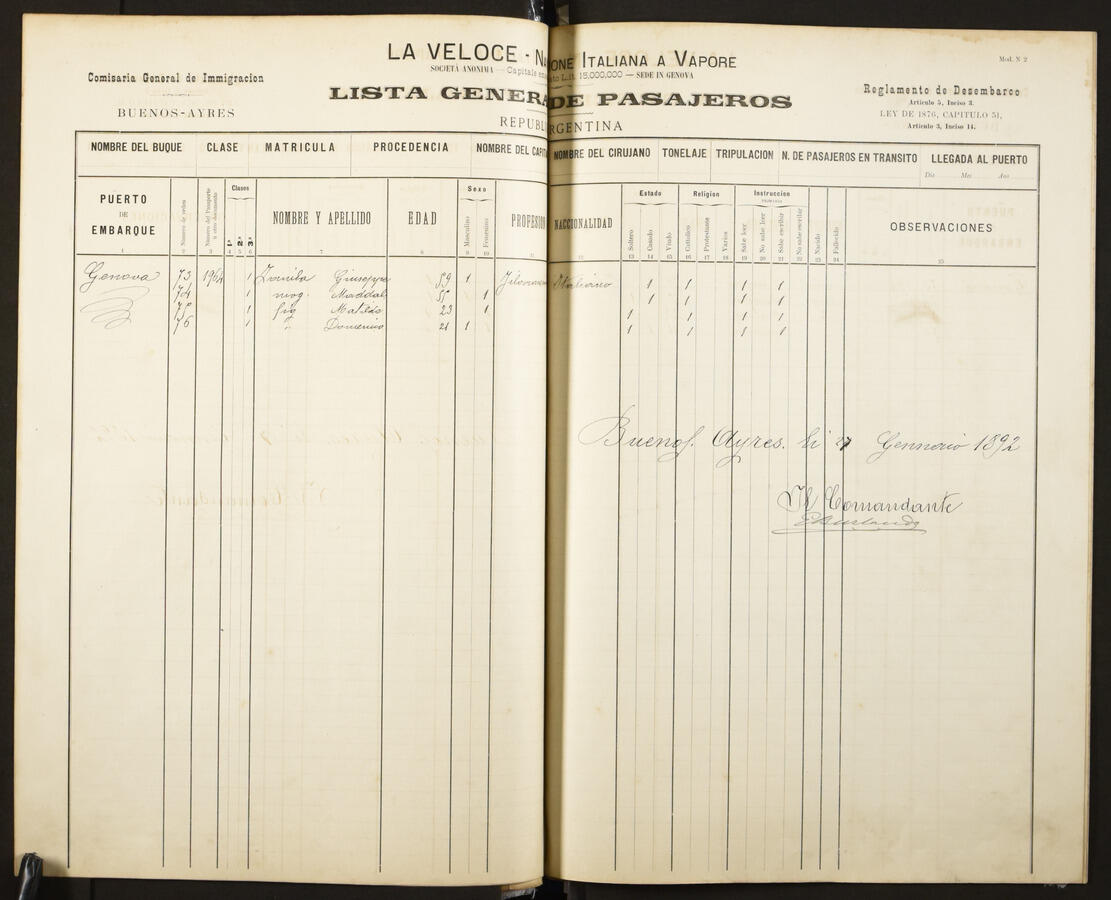 LA VELOCE - Na ONE ITALIANA A VAPORE
SOCIETÀ ANONIMA — Capitale L.it. 15,000,000 — SEDE IN GENOVA
Mod. N 2
Comisaria General de Immigracion
BUENOS-AYRES
LISTA GENERA DE PASAJEROS
REPUBL RGENTINA
Reglamento de Desembarco
Articulo 5, Inciso 3.
LEY DE 1876, CAPITULO 51,
Articulo 3, Inciso 14.
NOMBRE DEL BUQUE CLASE MATRICULA PROCEDENCIA NOMBRE DEL CAPIT NOMBRE DEL CIRUJANO TONELAJE TRIPULACION N. DE PASAJEROS EN TRANSITO LLEGADA AL PUERTO
Dia Mes Ano
PUERTO DE EMBARQUE Numero de orden Número del Pasaporte ú otro documento Clases 1ª 2ª 3ª NOMBRE Y APELLIDO EDAD Sexo Masculino Femenino PROFESION NACCIONALIDAD Estado Soltero Casado Viudo Religion Catholico Protestante Varios Instruccion Sabe leer No sabe leer Sabe escribir No sabe escribir Nacido Fallecido OBSERVACIONES
1 2 3 4 5 6 7 8 9 10 11 12 13 14 15 16 17 18 19 20 21 22 23 24 25
Genova 73 1964 1 Giuseppe 59 1 Italiano 1 1 1 1
74 1 mog. Maddal 55 1 1 1 1 1
75 1 fig Matilde 23 1 1 1 1 1
76 1 " Domenico 21 1 1 1 1 1
Buenos Ayres. li 27 Gennaio 1892
Il Comandante